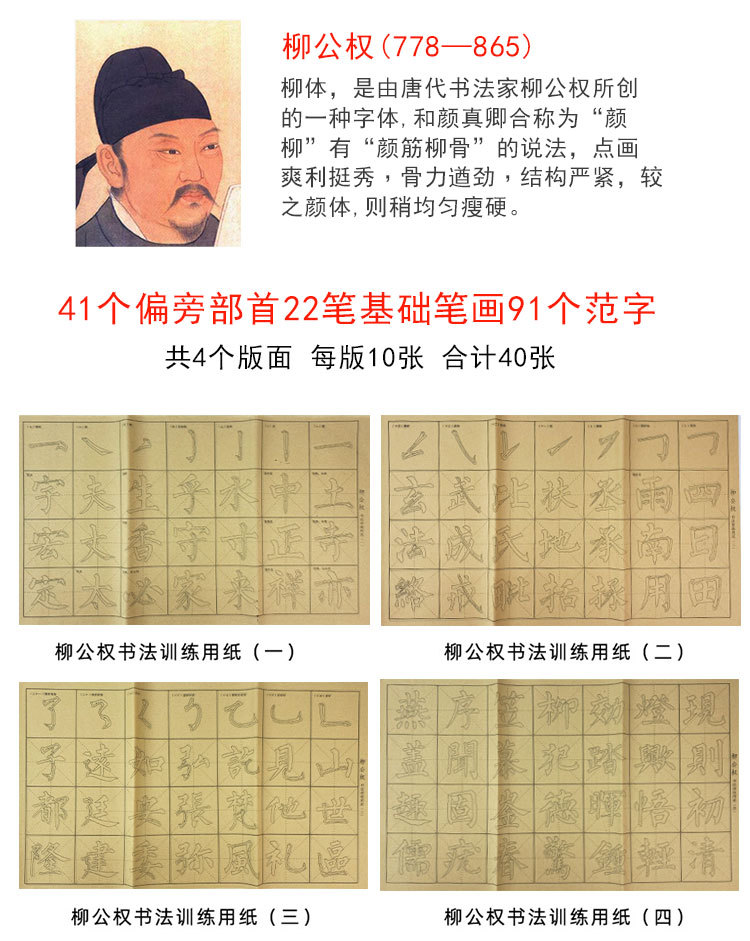 柳公权(778—865)
柳体，是由唐代书法家柳公权所创
的一种字体,和颜真卿合称为“颜
柳”有“颜筋柳骨”的说法，点画
爽利挺秀，骨力遒劲，结构严紧，较
之颜体,则稍均匀瘦硬。
41个偏旁部首22笔基础笔画91个范字
共4个版面 每版10张 合计40张
字夫生乎水中土
宏丈香守寸正寺
定木必家来祥亦
柳公权
柳公权书法训练用纸（一）
玄武比扶丞雨四
法成氏地承南回
絡戒毗括掾用田
柳公权
柳公权书法训练用纸（二）
子遠如弘託見山
都廷要張梵他世
隆建委弥風礼區
柳公权
柳公权书法训练用纸（三）
燕序柳効燈現
蓋聞犯踏歟則
趣固德暉悟初
儒疣春驚鍾輕清
柳公权
柳公权书法训练用纸（四）